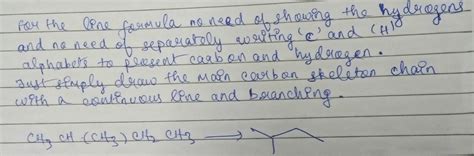 For the line formula no need of showing the hydrogens
and no need of separately writing 'c' and 'H'
alphabets to present carbon and hydrogen.
Just simply draw the main carbon skeleton chain
with a continuous line and branching.
CH3 CH (CH3) CH2 CH3 →